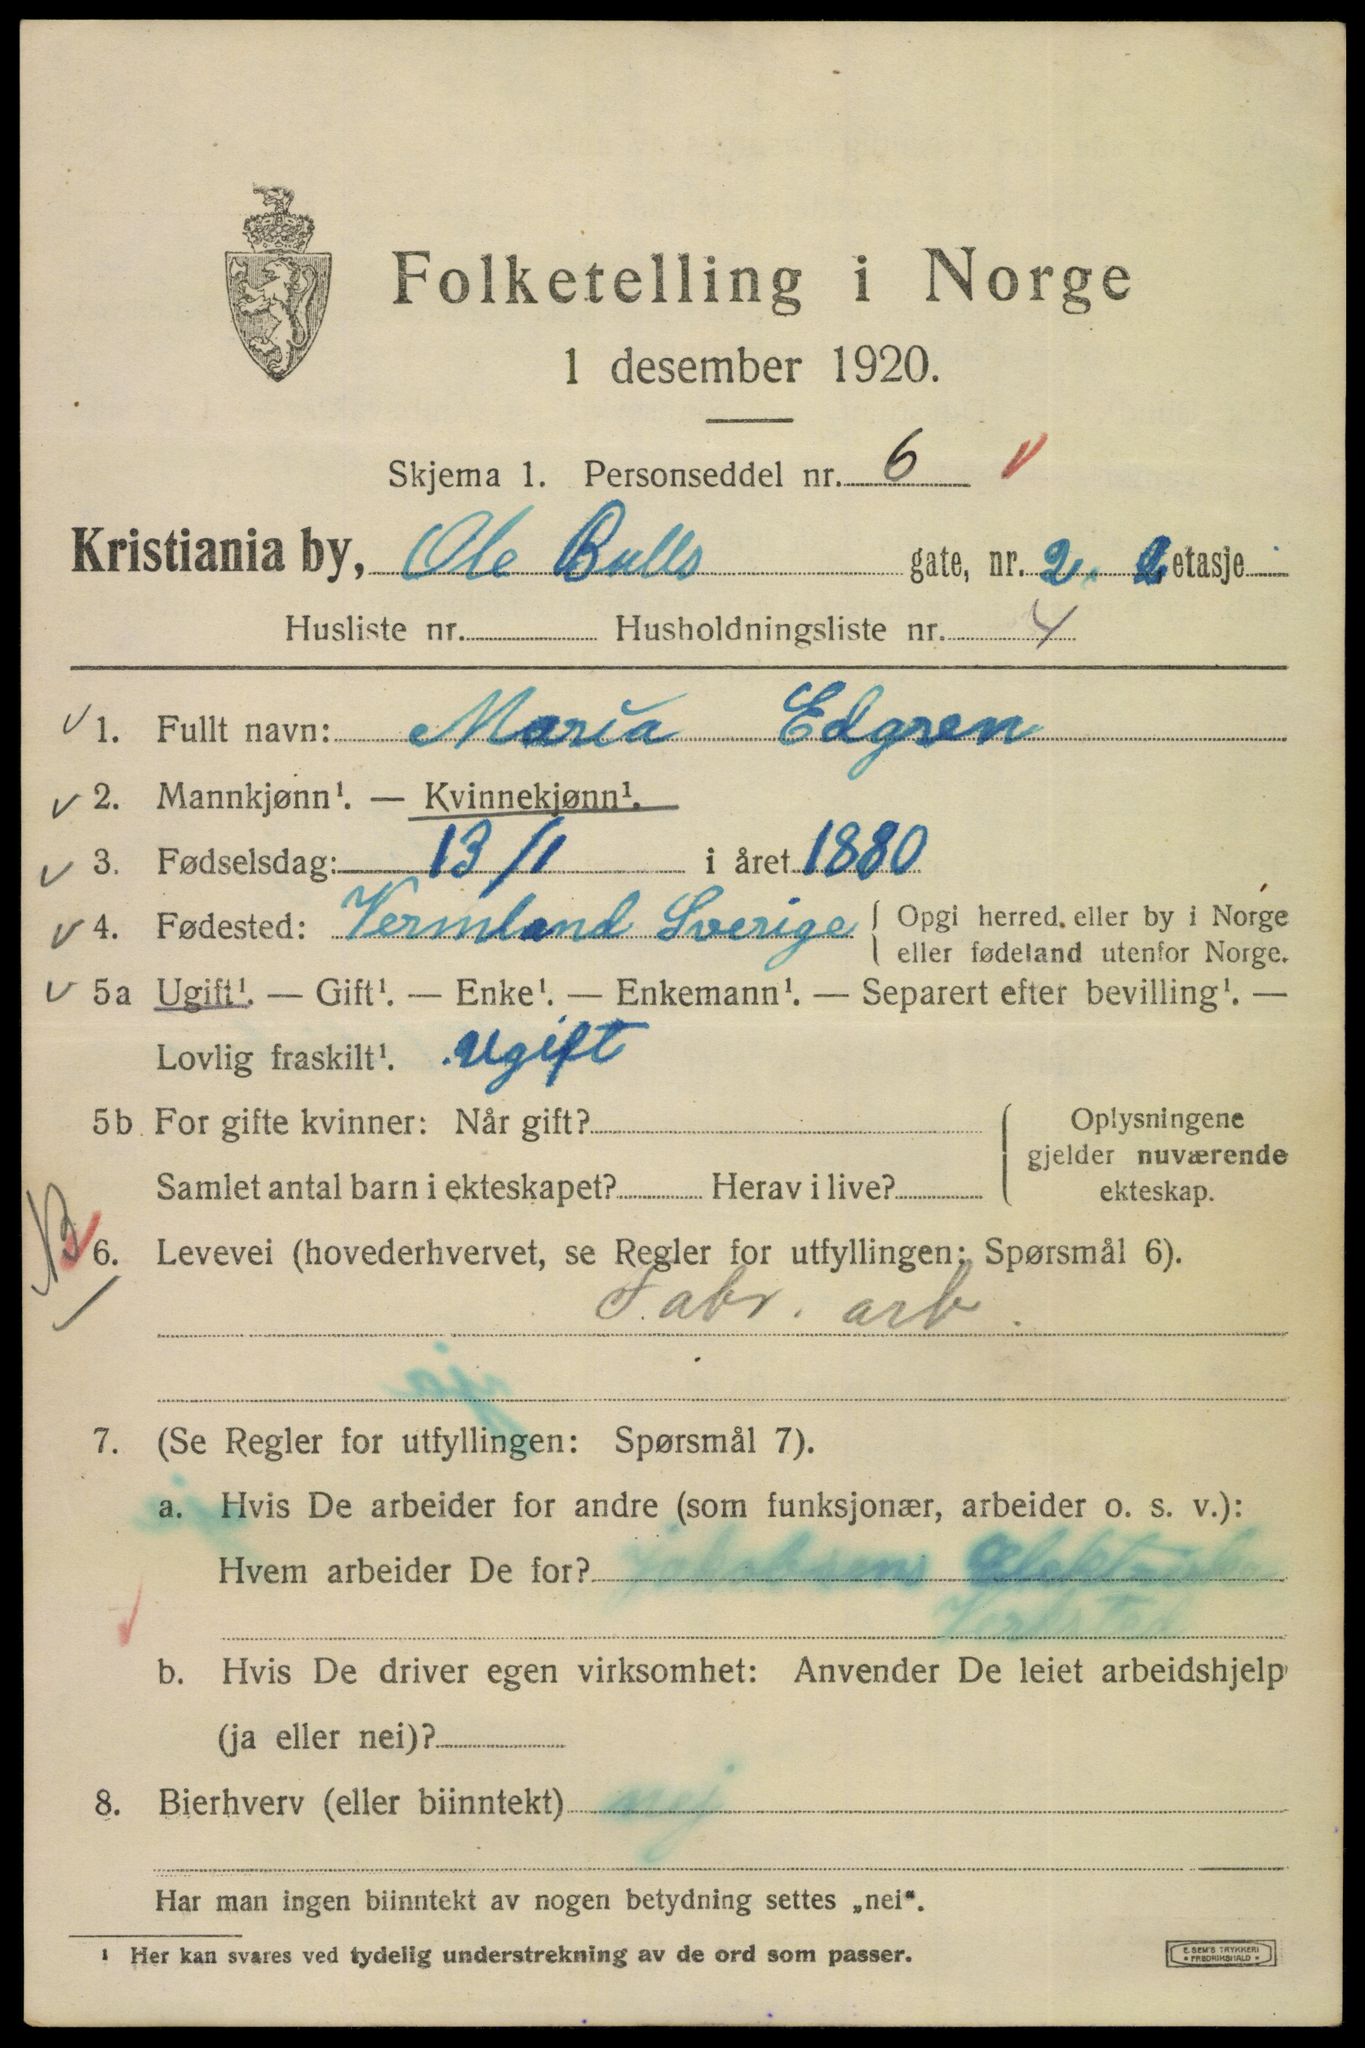 Folketelling i Norge
1 desember 1920.
Skjema 1. Personseddel nr. 6
Kristiania by, Ole Bulls gate, nr. 2. 2 etasje
Husliste nr. Husholdningsliste nr. 4
1. Fullt navn: Maria Edgren
2. Mannkjønn¹. — Kvinnekjønn¹.
3. Fødselsdag: 13/1 i året 1880
4. Fødested: Vermland Sverige { Opgi herred eller by i Norge
eller fødeland utenfor Norge.
5a Ugift¹. — Gift¹. — Enke¹. — Enkemann¹. — Separert efter bevilling¹. —
Lovlig fraskilt¹. Ugift
5b For gifte kvinner: Når gift?
Samlet antal barn i ekteskapet? Herav i live?
Oplysningene
gjelder nuværende
ekteskap.
6. Levevei (hovederhvervet, se Regler for utfyllingen: Spørsmål 6).
Fabr. arb.
7. (Se Regler for utfyllingen: Spørsmål 7).
a. Hvis De arbeider for andre (som funksjonær, arbeider o. s. v.):
Hvem arbeider De for?
Verksted
b. Hvis De driver egen virksomhet: Anvender De leiet arbeidshjelp
(ja eller nei)?
8. Bierhverv (eller biinntekt) nej
Har man ingen biinntekt av nogen betydning settes „nei“.
¹ Her kan svares ved tydelig understrekning av de ord som passer.
E. SEM'S TRYKKERI
FREDRIKSHALD